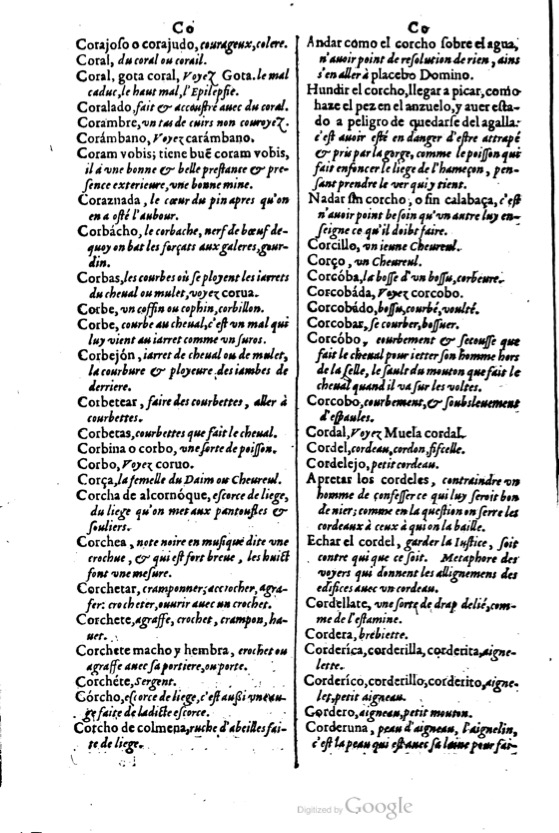 Co
Corajoſo o corajudo, courageux, colere.
Coral, du coral ou corail.
Coral, gota coral, Voyez Gota. le mal
caduc, le haut mal, l'Epilepſie.
Coralado, fait & accouſtré auec du coral.
Corambre, vn tas de cuirs non couroyez.
Corámbano, Voyez carámbano.
Coram vobis; tiene buē coram vobis,
il a vne bonne & belle preſtance & pre-
ſence exterieure, vne bonne mine.
Coraznada, le cœur du pin apres qu'on
en a oſté l'aubour.
Corbácho, le corbache, nerf de bœuf de-
quoy on bat les forçats aux galeres, gour-
din.
Corbas, les courbes où ſe ployent les iarrets
du cheual ou mulet, voyez corua.
Corbe, vn coffin ou cophin, corbillon.
Corbe, courbe au cheual, c'eſt vn mal qui
luy vient au iarret comme vn ſuros.
Corbejón, iarret de cheual ou de mulet,
la courbure & ployeure des iambes de
derriere.
Corbetear, faire des courbettes, aller à
courbettes.
Corbetas, courbettes que fait le cheual.
Corbina o corbo, vne ſorte de poiſſon.
Corbo, Voyez coruo.
Corça, la femelle du Daim ou Cheureul.
Corcha de alcornóque, eſcorce de liege,
du liege qu'on met aux pantoufles &
ſouliers.
Corchea, note noire en muſique dite vne
crochue, & qui eſt fort breue, les huict
font vne meſure.
Corchetar, cramponner; accrocher, agra-
fer: crocheter, ouurir auec vn crochet.
Corchete, agraffe, crochet, crampon, ha-
uet.
Corchete macho y hembra, crochet ou
agraffe auec ſa portiere, ou porte.
Corchéte, Sergent.
Córcho, eſcorce de liege, c'eſt auſſi vne au-
ge faite de ladicte eſcorce.
Corcho de colmena, ruche d'abeilles fai-
te de liege.
Co
Andar como el corcho ſobre el agua,
n'auoir point de reſolution de rien, ains
s'en aller à placebo Domino.
Hundir el corcho, llegar a picar, como
haze el pez en el anzuelo, y auer eſta-
do a peligro de quedarſe del agalla:
c'eſt auoir eſté en danger d'eſtre attrapé
& pris par la gorge, comme le poiſſon qui
fait enfoncer le liege de l'hameçon, pen-
ſant prendre le ver qui y tient.
Nadar ſin corcho, o ſin calabaça, c'eſt
n'auoir point beſoin qu'vn autre luy en-
ſeigne ce qu'il doibt faire.
Corcillo, vn ieune Cheureul.
Corço, vn Cheureul.
Corcóba, la boſſe d'vn boſſu, corbeure.
Corcobáda, Voyez corcobo.
Corcobádo, boſſu, courbé, voulté.
Corcobar, ſe courber, boſſuer.
Corcóbo, courbement & ſecouſſe que
fait le cheual pour ietter ſon homme hors
de la ſelle, le ſault du mouton que fait le
cheual quand il va ſur les voltes.
Corcobo, courbement, & ſoubſleuement
d'eſpaules.
Cordal, Voyez Muela cordal.
Cordel, cordeau, cordon, fiſcelle.
Cordelejo, petit cordeau.
Apretar los cordeles, contraindre vn
homme de confeſſer ce qui luy ſeroit bon
de nier; comme en la queſtion on ſerre les
cordeaux à ceux à qui on la baille.
Echar el cordel, garder la Iuſtice, ſoit
contre qui que ce ſoit. Metaphore des
voyers qui donnent les allignemens des
edifices auec vn cordeau.
Cordellate, vne ſorte de drap delié, com-
me de l'eſtamine.
Cordera, brebiette.
Corderíca, corderilla, corderita, aigne-
lette.
Corderíco, corderillo, corderito, aigne-
let, petit aigneau.
Cordero, aigneau, petit mouton.
Corderuna, peau d'aigneau, l'aignelin,
c'eſt la peau qui eſt auec ſa laine pour fai-
Digitized by Google